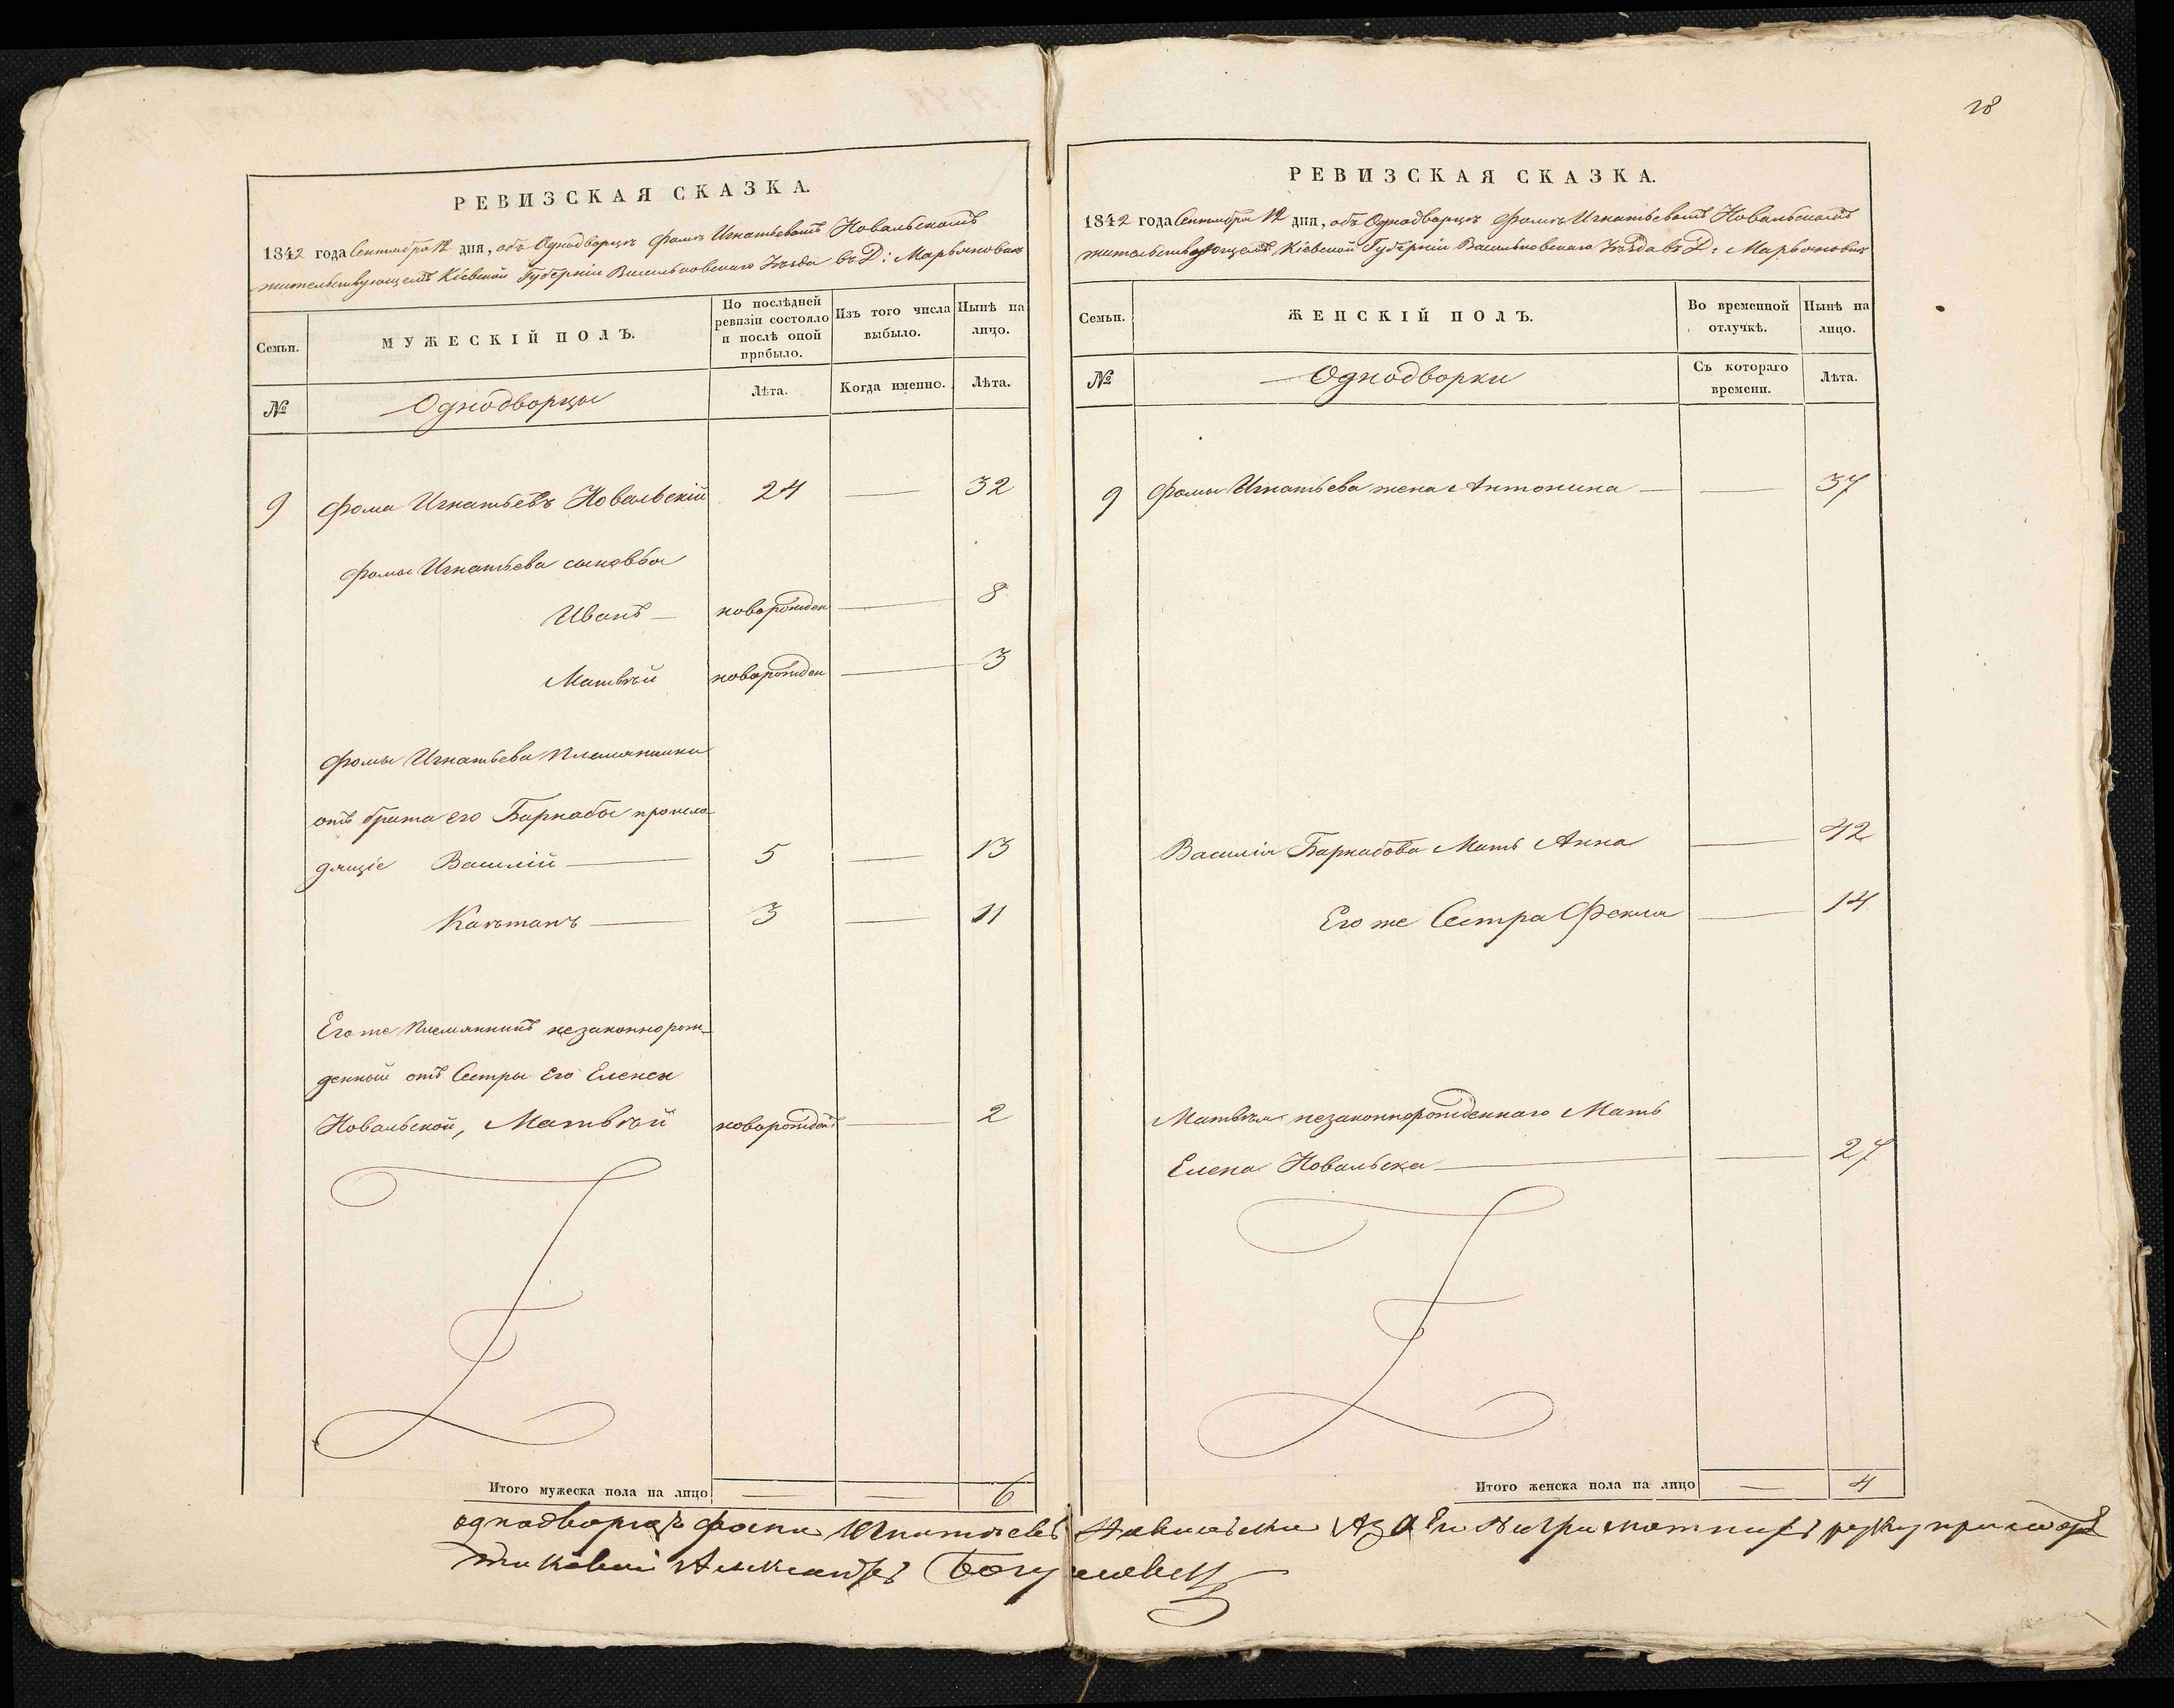 28
РЕВИЗСКАЯ СКАЗКА.
1842 года Сентября 12 дня, объ Однодворцѣ Фомѣ Игнатьевомъ Новальскомъ
жительствующемъ Кіевской Губерніи Васильковскаго Уѣзда въ Д: Марьяновкѣ
Семьи.
МУЖЕСКІЙ ПОЛЪ.
По послѣдней
ревизіи состояло
и послѣ оной
прибыло.
Изъ того числа
выбыло.
Нынѣ на
лицо.
№
Однодворцы
Лѣта.
Когда именно.
Лѣта.
9 Фома Игнатьевъ Новальскій 24 — 32
Фомы Игнатьева сыновья
Иванъ — новорожден — 8
Матвѣй новорожден — 3
Фомы Игнатьева племянники
отъ брата его Барнабы происхо-
дящіе Василій — 5 — 13
Каэтанъ — 3 — 11
Его же племянникъ незаконнорож-
денный отъ Сестры его Елены
Новальской, Матвѣй новорожден — 2
Итого мужеска пола на лицо — — 6
РЕВИЗСКАЯ СКАЗКА.
1842 года Сентября 12 дня, объ Однодворцѣ Фомѣ Игнатьевомъ Новальскомъ
жительствующемъ Кіевской Губерніи Васильковскаго Уѣзда въ Д: Марьяновкѣ
Семьи.
ЖЕНСКІЙ ПОЛЪ.
Во временной
отлучкѣ.
Нынѣ на
лицо.
№
Однодворки
Съ котораго
времени.
Лѣта.
9 Фомы Игнатьева жена Антонина — — 37
Василія Барнабова Мать Анна — 42
Его же Сестра Фекла — 14
Матвѣя незаконнорожденнаго Мать
Елена Новальска — — 27
Итого женска пола на лицо — 4
однодворецъ Фома Игнатьевъ Новальски А за его руку
Александръ